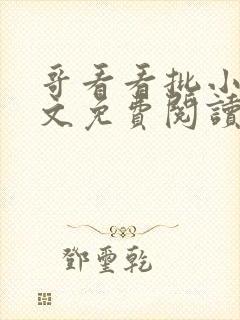 哥看看批小
文免費閱讀
鄧璽乾